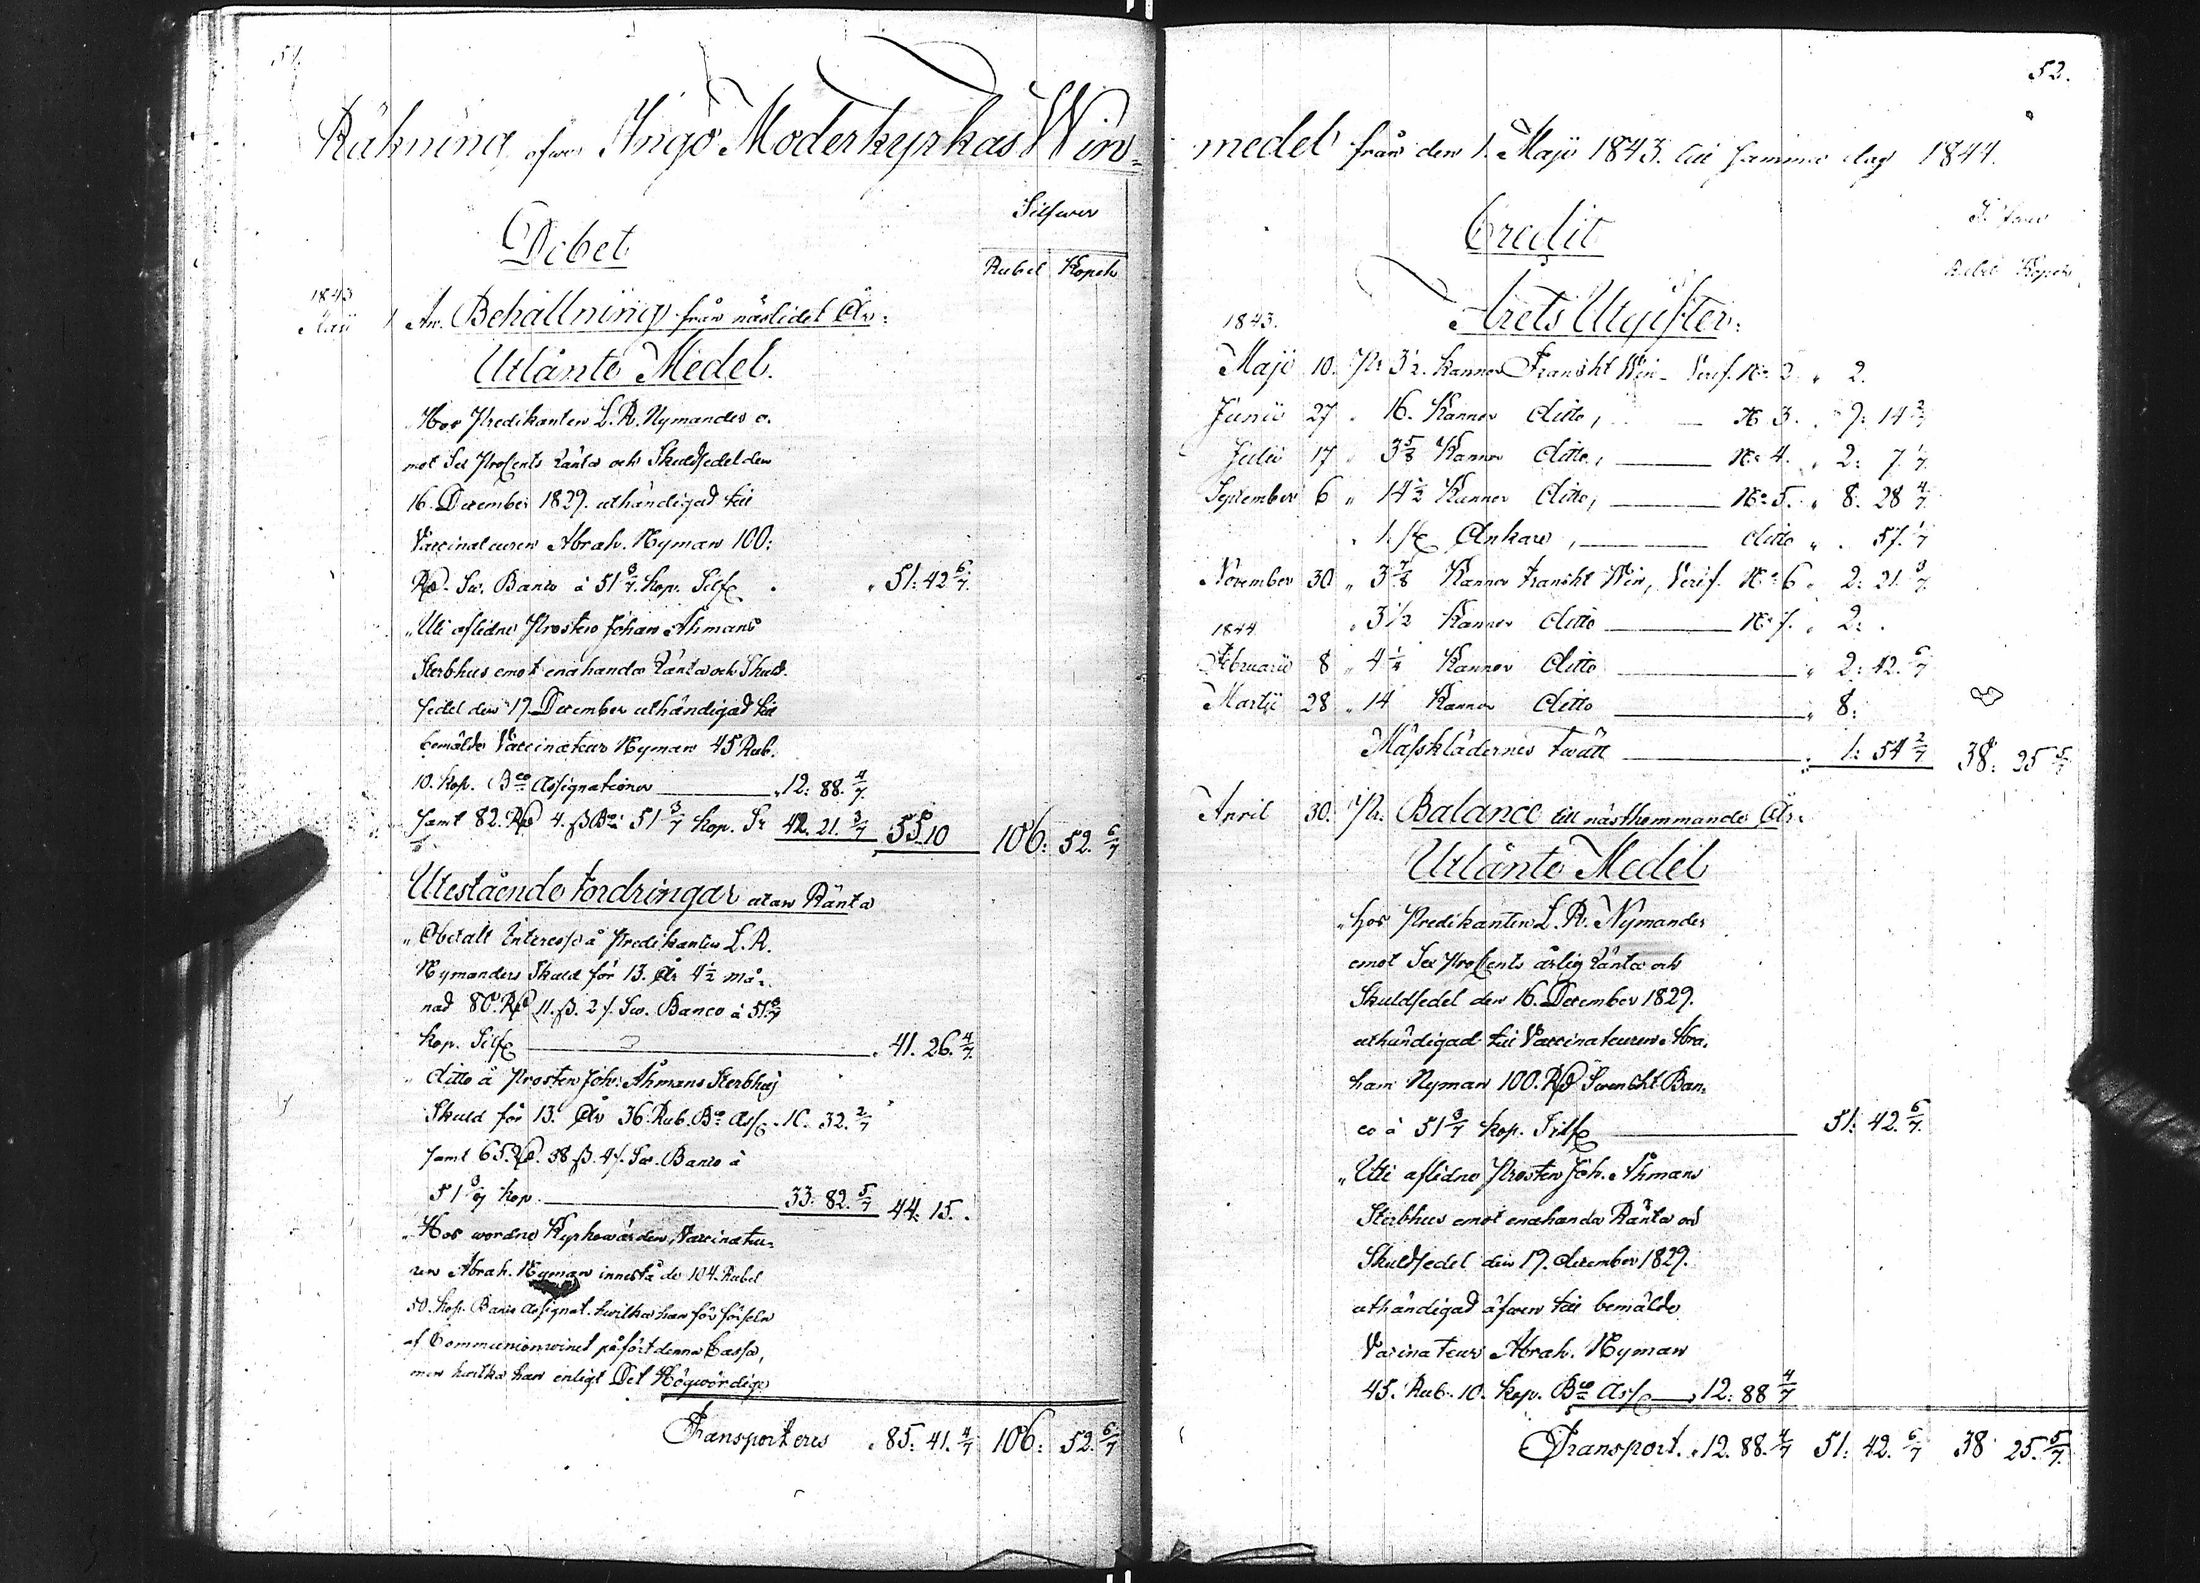 51.
Räkning öfwer Ingo Moderkyrkas Win=
Silfwer
Debet
Rubel Kopek
1843
Maji 1 An. Behållning från näslidet År:
Utlånte Medel.
Hos Predikanten L. R. Nymander e.
mot Sex ProCents Ränta och Skuldsedel den
16. December 1829. uthändigad till
Vaccinateuren Abrah. Nyman 100:
Rd. Sw. Banco à 51 3/7. kop. Silf. " 51: 42 6/7.
" Uti aflidne Prosten Johan Åhmans
Sterbhus emot enahanda Ränta och Skuld-
sedel den 17. December uthändigad till
bemälde Vaccinateur Nyman 45 Rub.
10. kop. Bco Assignationer " 12: 88. 4/7.
samt 82. Rd 4. ß Bco 51 3/7 kop. Sr 42. 21. 3/7 55. 10 106: 52. 6/7
Utestående fordringar utan Ränta
" Obetalt Interesse å Predikanten L. R.
Nymanders Skuld för 13. År 4 1/2 må-
nad 80. Rd 11. ß. 2 f. Sw. Banco à 51 3/7
kop. Silf " 41. 26. 4/7.
" ditto å Prosten Joh: Åhmans Sterbhus
Skuld för 13. År 36. Rub. Bco Ass. 10. 32. 2/7
samt 65. Rd. 38 ß. 4 f. Sw. Banco à
51 3/7 kop. 33: 82. 5/7 44: 15. "
" Hos wordne Kyrkowärden, Vaccinateu-
ren Abrah. Nyman innestå de 104. Rubel
50. kop. Banco Assignat. hwilka han för förseln
af Communionwinet påfört denna Cassa,
men hwilka han enligt Det Högwördige
Transporteres " 85: 41. 4/7 106: 52. 6/7
52.
medel från den 1. Maji 1843. till samma dag 1844.
Silfwer
Credit
Rubel Kopek
Årets Utgifter:
1843.
Maji 10. Pr 3 1/2. Kannor Franskt Win - Verif. No 2. " 2.
Junii 27 " 16. Kannor ditto, No 3. " 9: 14 2/7
Julii 17 " 3 5/8 Kannor ditto, No 4. " 2: 7. 1/7.
September 6 " 14 1/2 Kannor ditto, No 5. " 8. 28 4/7
" 1. st Ankare, ditto " . 57. 1/7
November 30 " 3 7/8 Kannor franskt Win, Verif. No 6 " 2: 21. 3/7
1844. " 3 1/2 Kannor ditto No 7. " 2: .
Februarii 8 " 4 1/4 Kannor ditto " 2: 42. 6/7
Martii 28 " 14 Kannor ditto " 8:
Mässklädernes twätt " 1: 54 2/7 38: 25 5/7
April 30. Pr. Balance till nästkommande År.
Utlånte Medel
" hos Predikanten L. R. Nymander
emot Sex ProCents årlig Ränta och
Skuldsedel den 16. December 1829.
uthändigad till Vaccinateuren Abra-
ham Nyman 100. Rd Swenskt Ban-
co à 51 3/7 kop. Silf 51: 42. 6/7.
" Uti aflidne Prosten Joh. Åhmans
Sterbhus emot enahanda Ränta och
Skuldsedel den 17. december 1829.
uthändigad äfwen till bemälde
Vacinateur Abrah. Nyman
45. Rub. 10. kop. Bco Ass " 12: 88 4/7
Transport. " 12. 88. 4/7 51: 42. 6/7 38 25. 5/7.